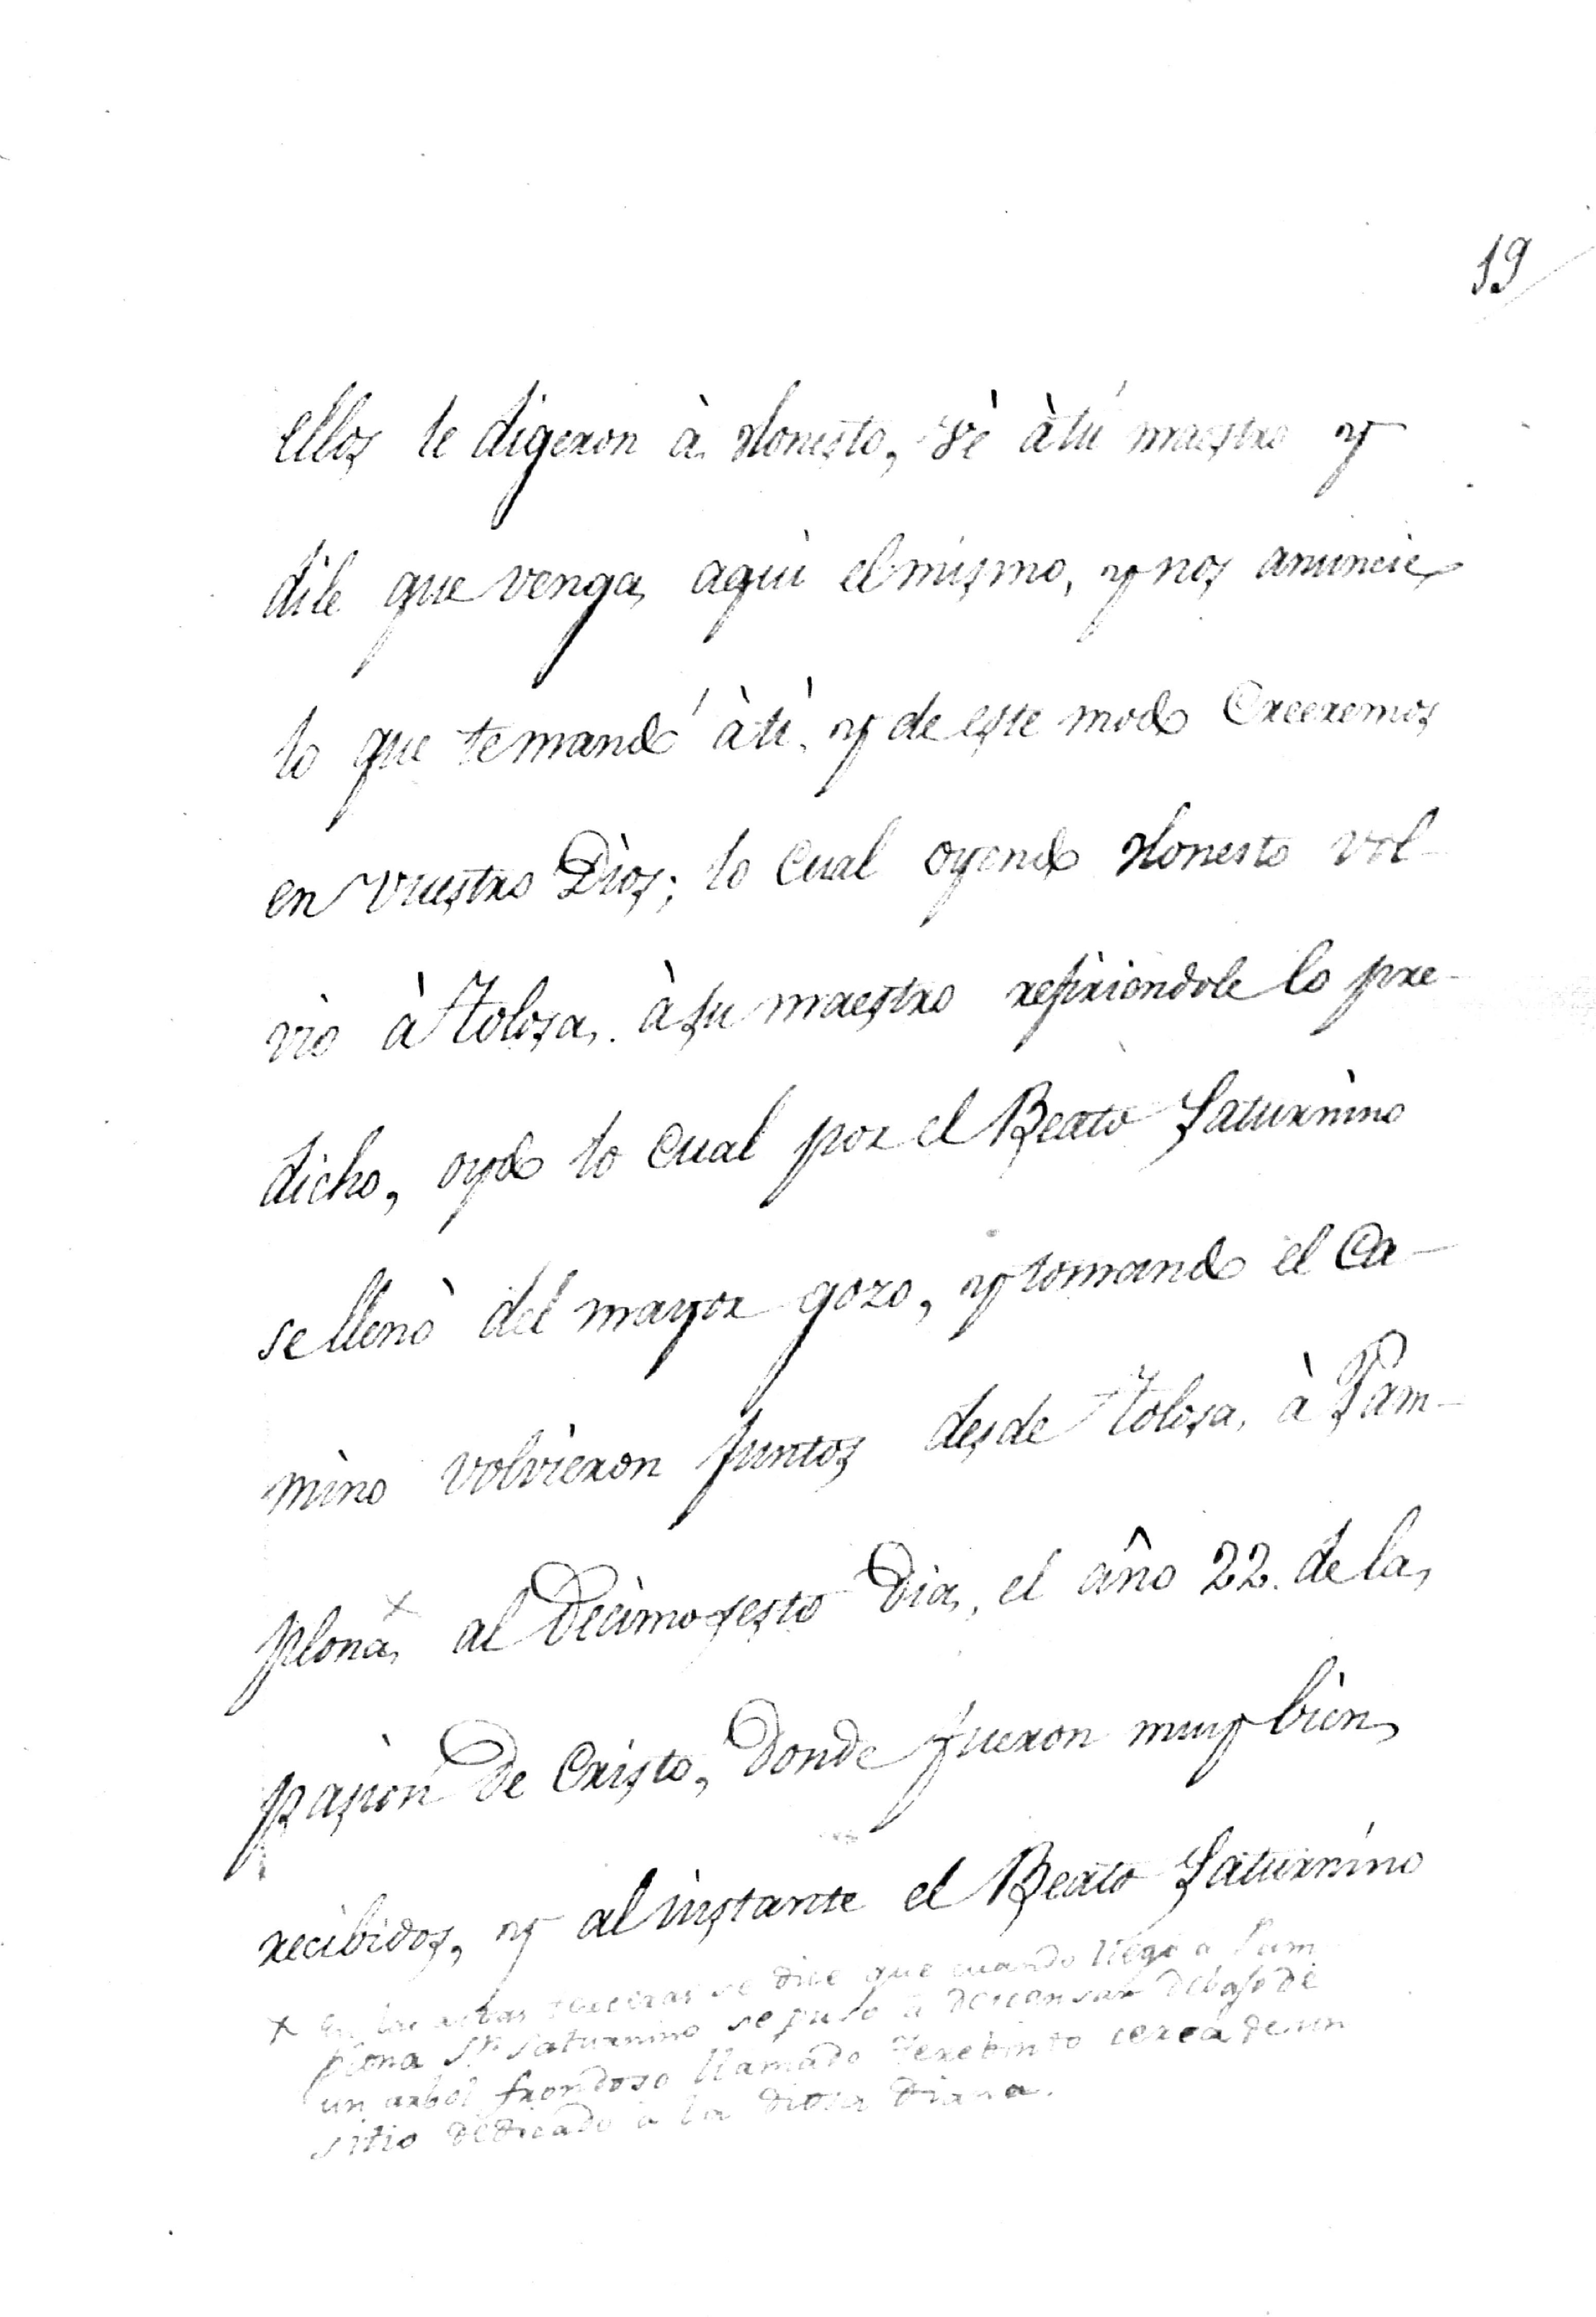 19
ellos le digeron à Honesto, vè à tú maestro y
dile que venga aqui el mismo, y nos anuncie
lo que te mandó à ti, y de este modo Creeremos
en vuestro Dios; lo Cual oyendo Honesto vol-
vio à Tolosa. à su maestro refiriendole lo pre-
dicho, oydo lo Cual por el Beato Saturnino
se llenò del mayor gozo, y tomando el Ca-
mino volvieron Juntos desde Tolosa, à Pam-
plona, x al Decimo sesto Dia, el año 22. de la
pasion De Cristo, Donde fueron muy bien
recibidos, y al instante el Beato Saturnino
x En las actas terceras se dice que cuando llegó a Pam
plona Sn Saturnino se puso a descansar debajo de
un arbol frondoso llamado Terebinto cerca de un
sitio dedicado a la Diosa Diana.